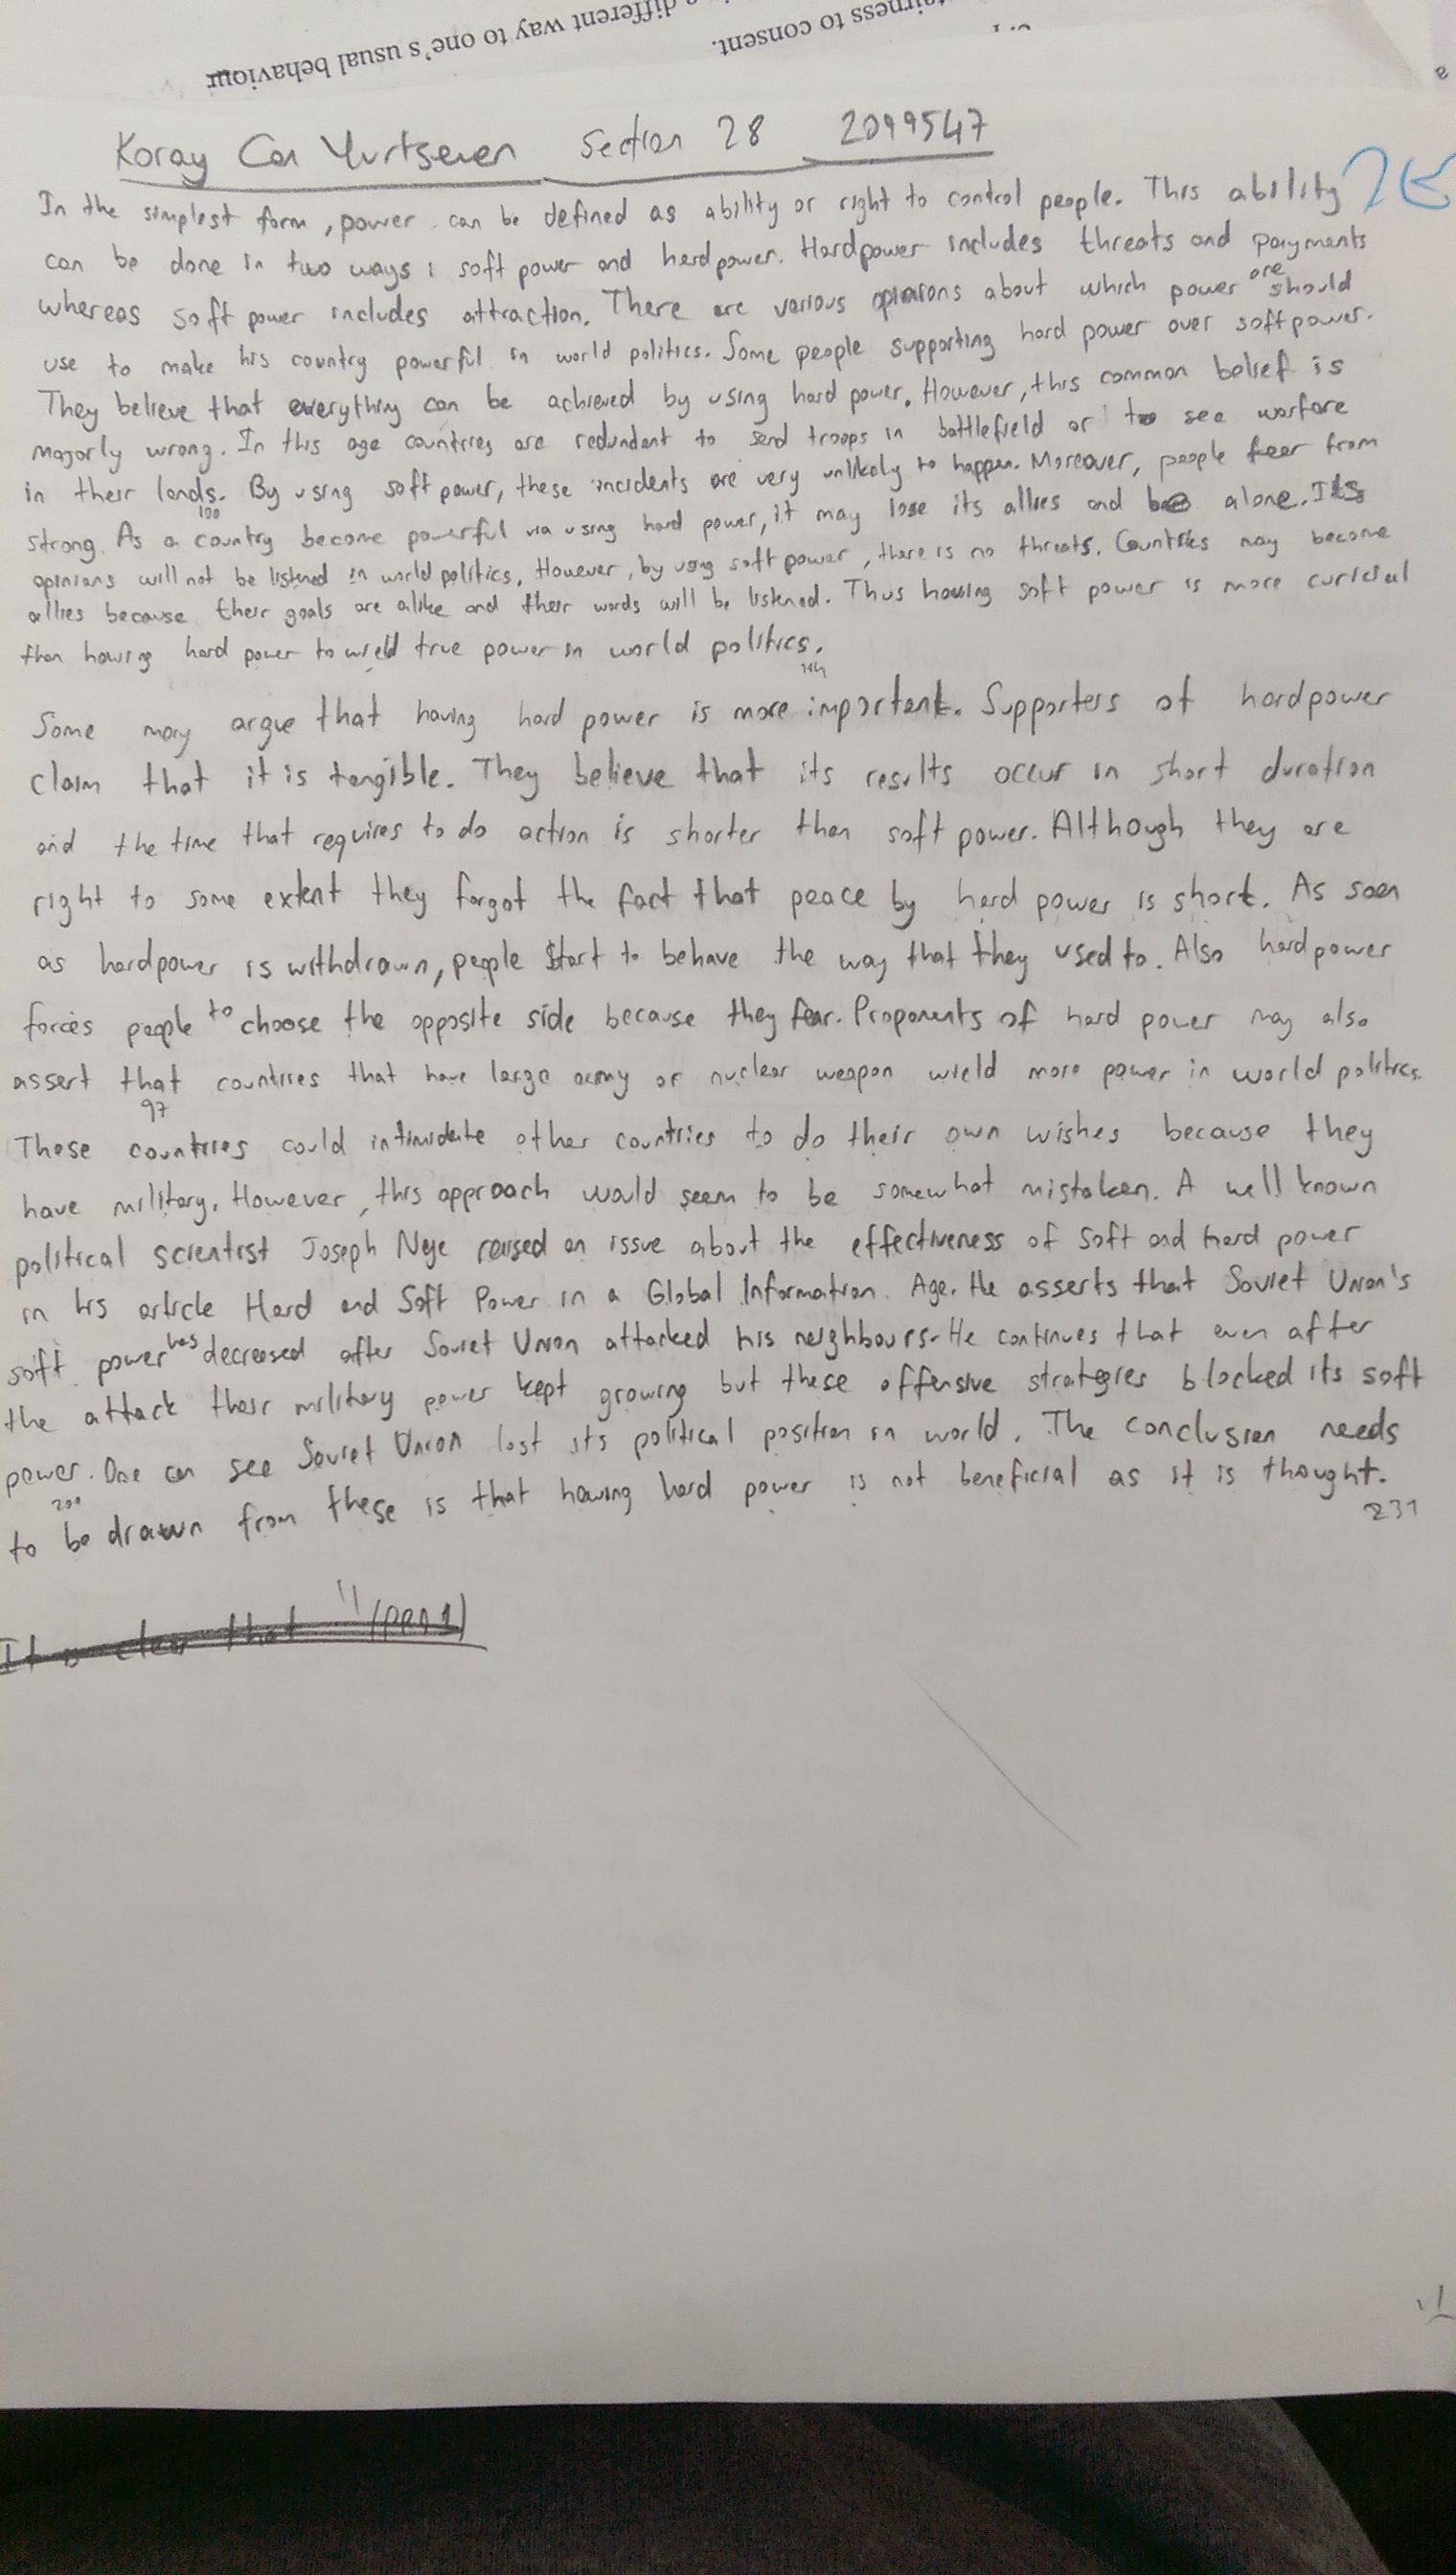 a different way to one's usual behaviour
to consent.
Koray Can Yurtseven Section 28 2099547
In the simplest form, power can be defined as ability or right to control people. This ability
can be done in two ways: soft power and hardpower. Hardpower includes threats and payments
whereas soft power includes attraction. There are various opinions about which power one should
use to make his country powerful in world politics. Some people supporting hard power over softpower.
They believe that everything can be achieved by using hard power. However, this common belief is
majorly wrong. In this age countries are redundant to send troops in battlefield or to see warfare
in their lands. By using soft power, these incidents are very unlikely to happen. Moreover, people fear from
100
strong. As a country become powerful via using hard power, it may lose its allies and be alone. Its
opinions will not be listened in world politics. However, by using soft power, there is no threats. Countries may become
allies because their goals are alike and their words will be listened. Thus having soft power is more curicial
than having hard power to wield true power in world politics.
Some may argue that having hard power is more important. Supporters of hardpower
claim that it is tangible. They believe that its results occur in short duration
and the time that requires to do action is shorter than soft power. Although they are
right to some extent they forgot the fact that peace by hard power is short. As soon
as hardpower is withdrawn, people start to behave the way that they used to. Also hardpower
forces people to choose the opposite side because they fear. Proponents of hard power may also
assert that countries that have large army or nuclear weapon wield more power in world politics.
97
These countries could intimidate other countries to do their own wishes because they
have military. However, this approach would seem to be somewhat mistaken. A well known
political scientist Joseph Nye raised an issue about the effectiveness of soft and hard power
in his article Hard and Soft Power in a Global Information Age. He asserts that Soviet Union's
soft power has decreased after Soviet Union attacked his neighbours. He continues that even after
the attack their military power kept growing but these offensive strategies blocked its soft
power. One can see Soviet Union lost its political position in world. The conclusion needs
200
to be drawn from these is that having hard power is not beneficial as it is thought.
231
It is clear that " (par 1)